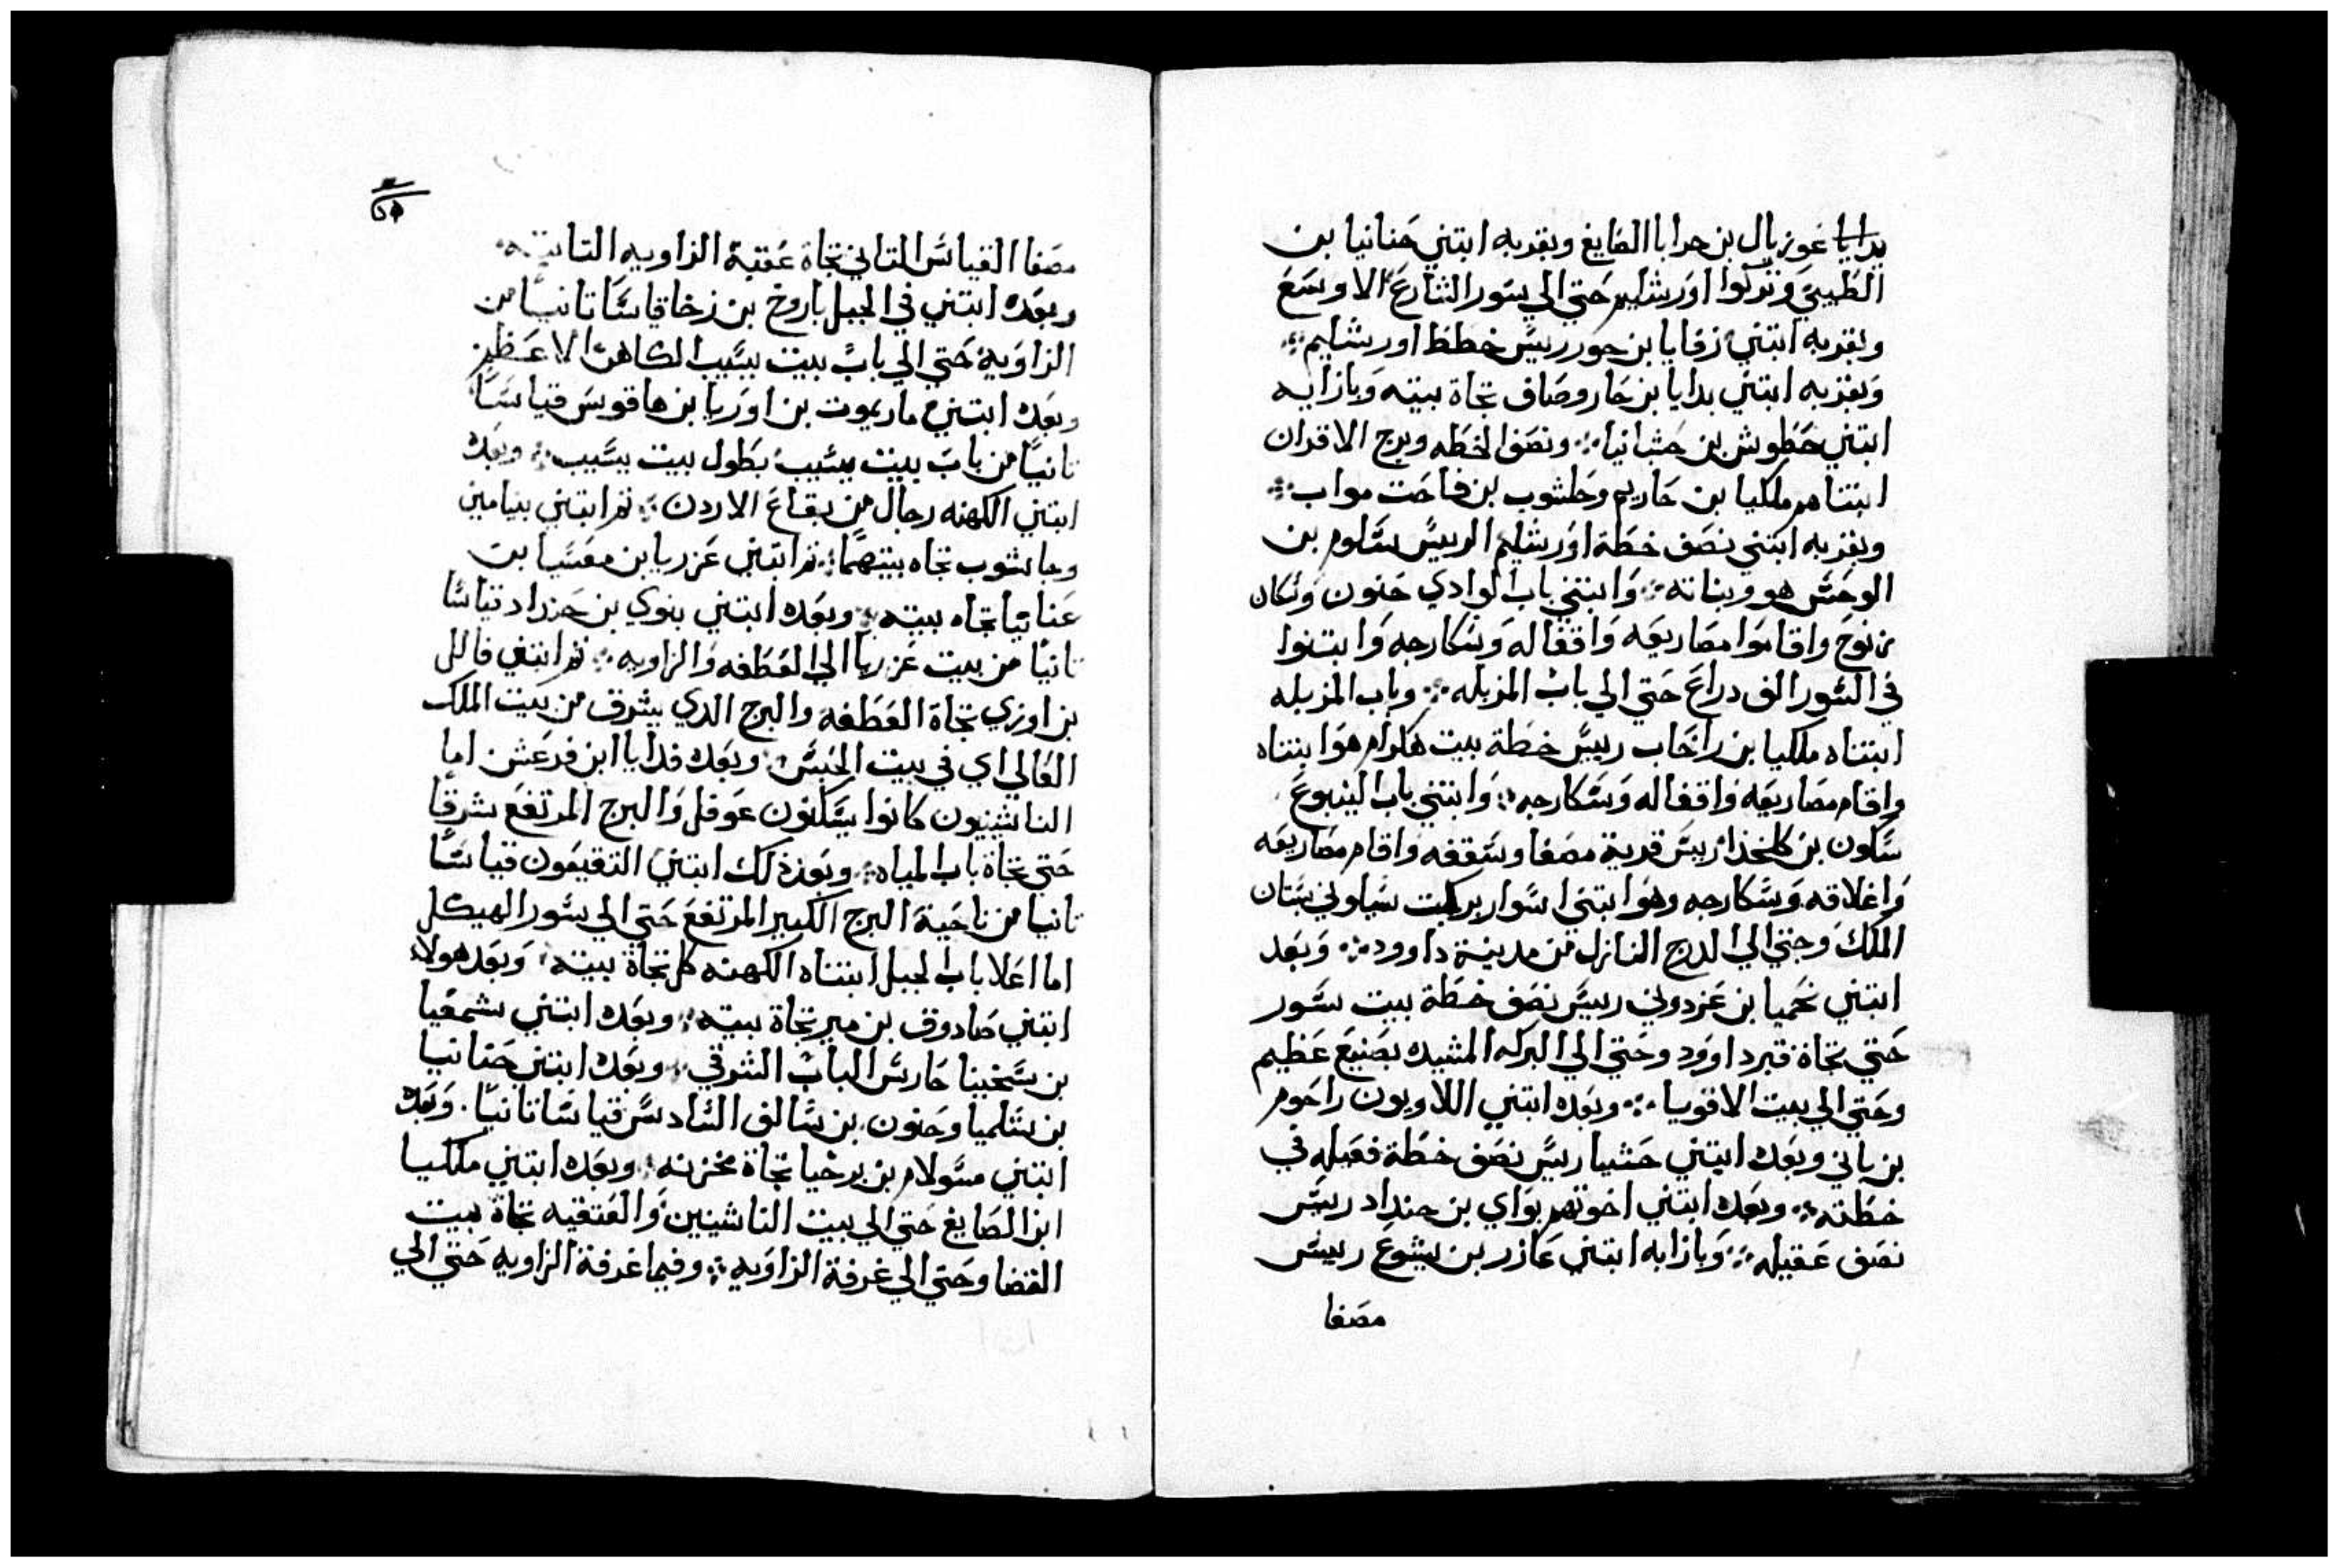 غوزيال بن حرايا الصايغ وبقربه ابتني حنانيا بن
الطيبي وتركوا اورشليم حتي الي سور الشارع الاوسع
وبقربه ابتني زفايا بن حور رييس خطط اورشليم
وبقربه ابتني يدايا بن حاروصاف تجاة بيته وبازايه
ابتني حطوش بن حشبانيا ونصف الخطه وبرج الاقران
ابتناهم ملكيا بن حاريم وحلشوب بن فاحت مواب
وبقربه ابتني نصف خطة اورشليم الرييس سلوم بن
الوحش هو وبناته وابتني باب الوادي حنون وسكان
زنوح واقاموا مصاريعه واقفاله وسكارجه وابتنوا
في السور الف دراع حتي الي باب المزبله وباب المزبله
ابتناه ملكيا بن راخاب رييس خطة بيت هكرام هو ابتناه
واقام مصاريعه واقفاله وسكارجه وابتني باب الينبوع
سلون بن كلخذا رييس قرية مصفا وسقفه واقام مصاريعه
واغلاقه وسكارجه وهو ابتني اسوار بركت سياوني بستان
الملك وحتي الي الدرج النازل من مدينة داوود وبعد
ابتني نحميا بن عزدوني رييس نصف خطة بيت سور
حتي تجاة قبر داوود وحتي الي البركه المشيده بصنيع عظيم
وحتي الي بيت الاقويا وبعده ابتني اللاويون راحوم
بن باني وبعده ابتني حشيا رييس نصف خطة فعيله في
خطته وبعده ابتني اخوتهم بواي بن حنداد رييس
نصف عقيله وبازايه ابتني عازر بن يشوع رييس
مصفا
مصفا القياس التاني تجاة عقبة الزاويه التابته
وبعده ابتني في الجبل باروخ بن زخا قياسا تانيا من
الزاوية حتي الي باب بيت يسيب الكاهن الاعظم
وبعده ابتني ماريموت بن اوريا بن هاقوس قياسا
تانيا من باب بيت يسيب بطول بيت يسيب وبعده
ابتني الكهنه رجال من بقاع الاردن تم ابتني بنيامين
وحاشوب تجاه بيتهما تم ابتني عزريا بن معسيا بن
عنانيا تجاه بيته وبعده ابتني بنوي بن حنداد قياسا
تانيا من بيت عزريا الي العطفه والزاويه تم ابتني فالل
بن اوزي تجاة العطفه والبرج الدي يشرق من بيت الملك
العالي اي في بيت الحبس وبعده فدايا ابن فرعش اما
الناشينيون كانوا يسكنون عوفل والبرج المرتفع شرقا
حتي تجاة باب المياه وبعد ذلك ابتني التقيعون قياسا
تانيا من ناحية البرج الكبير المرتفع حتي الي سور الهيكل
اما اعلا باب الجبل ابتناه الكهنه كل تجاة بيته وبعد هولاء
ابتني صادوق بن مير تجاة بيته وبعده ابتني شمعيا
بن سخينا حارس الباب الشرقي وبعده ابتني حنانيا
بن سلميا وحنون بن سالف السادس قياسا تانيا وبعده
ابتني مسولام بن برخيا تجاة مخزنه وبعده ابتني ملكيا
ابن الصايغ حتي الي بيت الناشينين والعتقيه تجاة بيت
القضا وحتي الي غرفة الزاويه وفيما غرفة الزاويه حتي الي